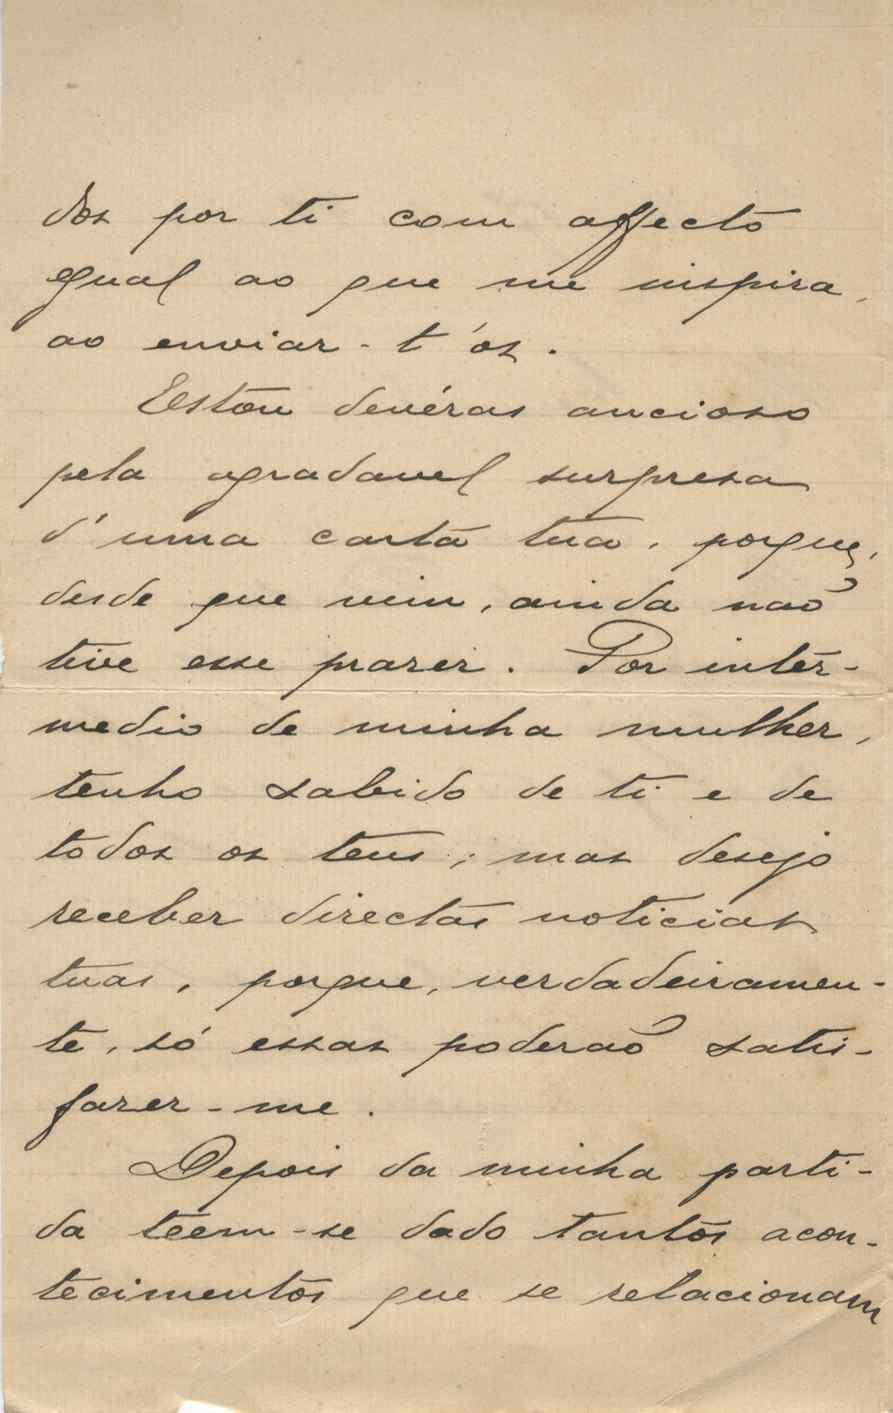 dos por ti com affecto
egual ao que me inspira,
ao enviar-t'os.
Estou devéras ancioso
pela agradavel surpresa
d'uma carta tua, porque,
desde que vim, ainda não
tive esse prazer. Por inter-
medio de minha mulher,
tenho sabido de ti e de
todos os teus; mas desejo
receber directas noticias
tuas, porque, verdadeiramen-
te, só essas poderão satis-
fazer-me.
Depois da minha parti-
da téem-se dado tantos acon-
tecimentos que se relacionam